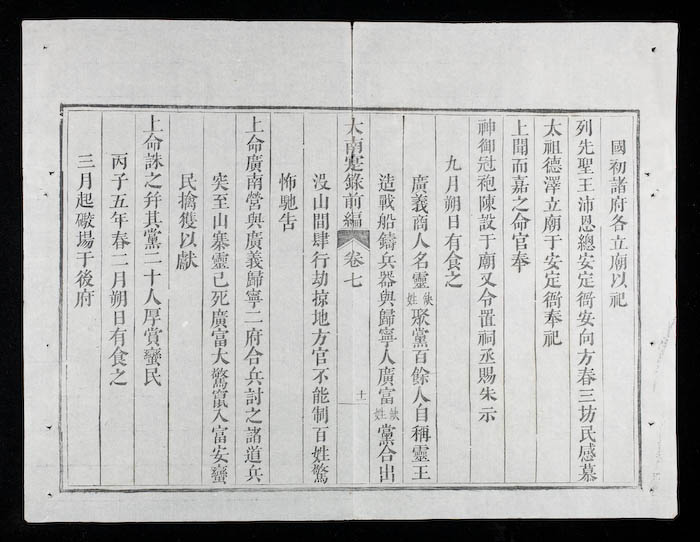 國初諸府各立廟以祀
列先聖王沛恩總安定衙安向方春三坊民感慕
太祖德澤立廟于安定衙奉祀
上聞而嘉之命官奉
神御冠袍陳設于廟又令置祠丞賜朱示
九月朔日有食之
廣義商人名靈缺姓聚黨百餘人自稱靈王
造戰船鑄兵器與歸寧人廣富缺姓黨合出
大南寔錄前編 卷七 十一
没山間肆行劫掠地方官不能制百姓驚
怖馳告
上命廣南營與廣義歸寧二府合兵討之諸道兵
突至山寨靈已死廣富大驚竄入富安蠻
民擒獲以獻
上命誅之并其黨二十人厚賞蠻民
丙子五年春二月朔日有食之
三月起礮場于後府